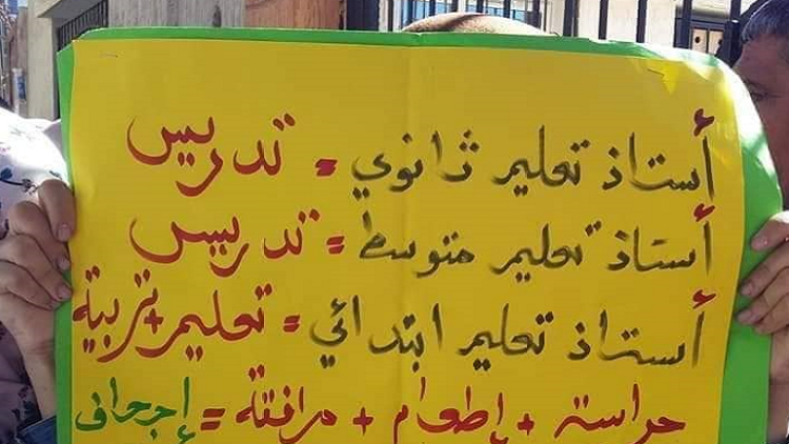 أستاذ تعليم ثانوي = تدريس
أستاذ تعليم متوسط = تدريس
أستاذ تعليم ابتدائي = تعليم + تربية
حراسة + إطعام + مرافقة = إجحاف